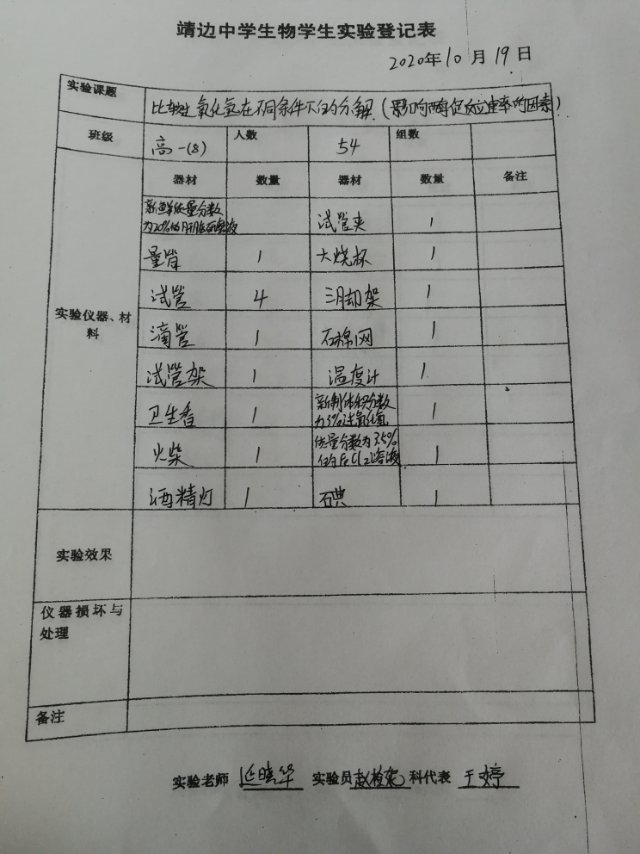 靖边中学生物学生实验登记表
2020年10月19日
实验课题 比较过氧化氢在不同条件下的分解（影响酶促反应速率的因素）
班级 高一(8) 人数 54 组数
器材 数量 器材 数量 备注
新鲜质量分数
为20%的肝脏研磨液 试管夹 1
量筒 1 大烧杯 1
试管 4 三脚架 1
实验仪器、材料
滴管 1 石棉网 1
试管架 1 温度计 1
卫生香 1 新制体积分数
为3%过氧化氢 1
火柴 1 质量分数为3.5%
的FeCl3溶液 1
酒精灯 1 1
实验效果
仪器损坏与
处理
备注
实验老师 延晓华 实验员 科代表 王婷